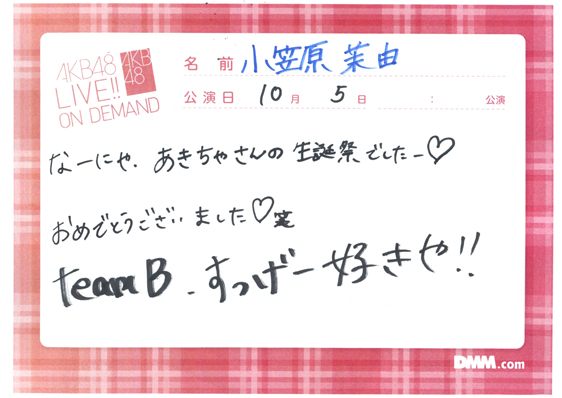 AKB48
LIVE!!
ON DEMAND
AKB
48
名前 小笠原 茉由
公演日 10月 5日 : 公演
なーにゃ、あきちゃさんの 生誕祭でしたー♡
おめでとうございました♡笑
teamB、すっげー好きや!!
DMM.com